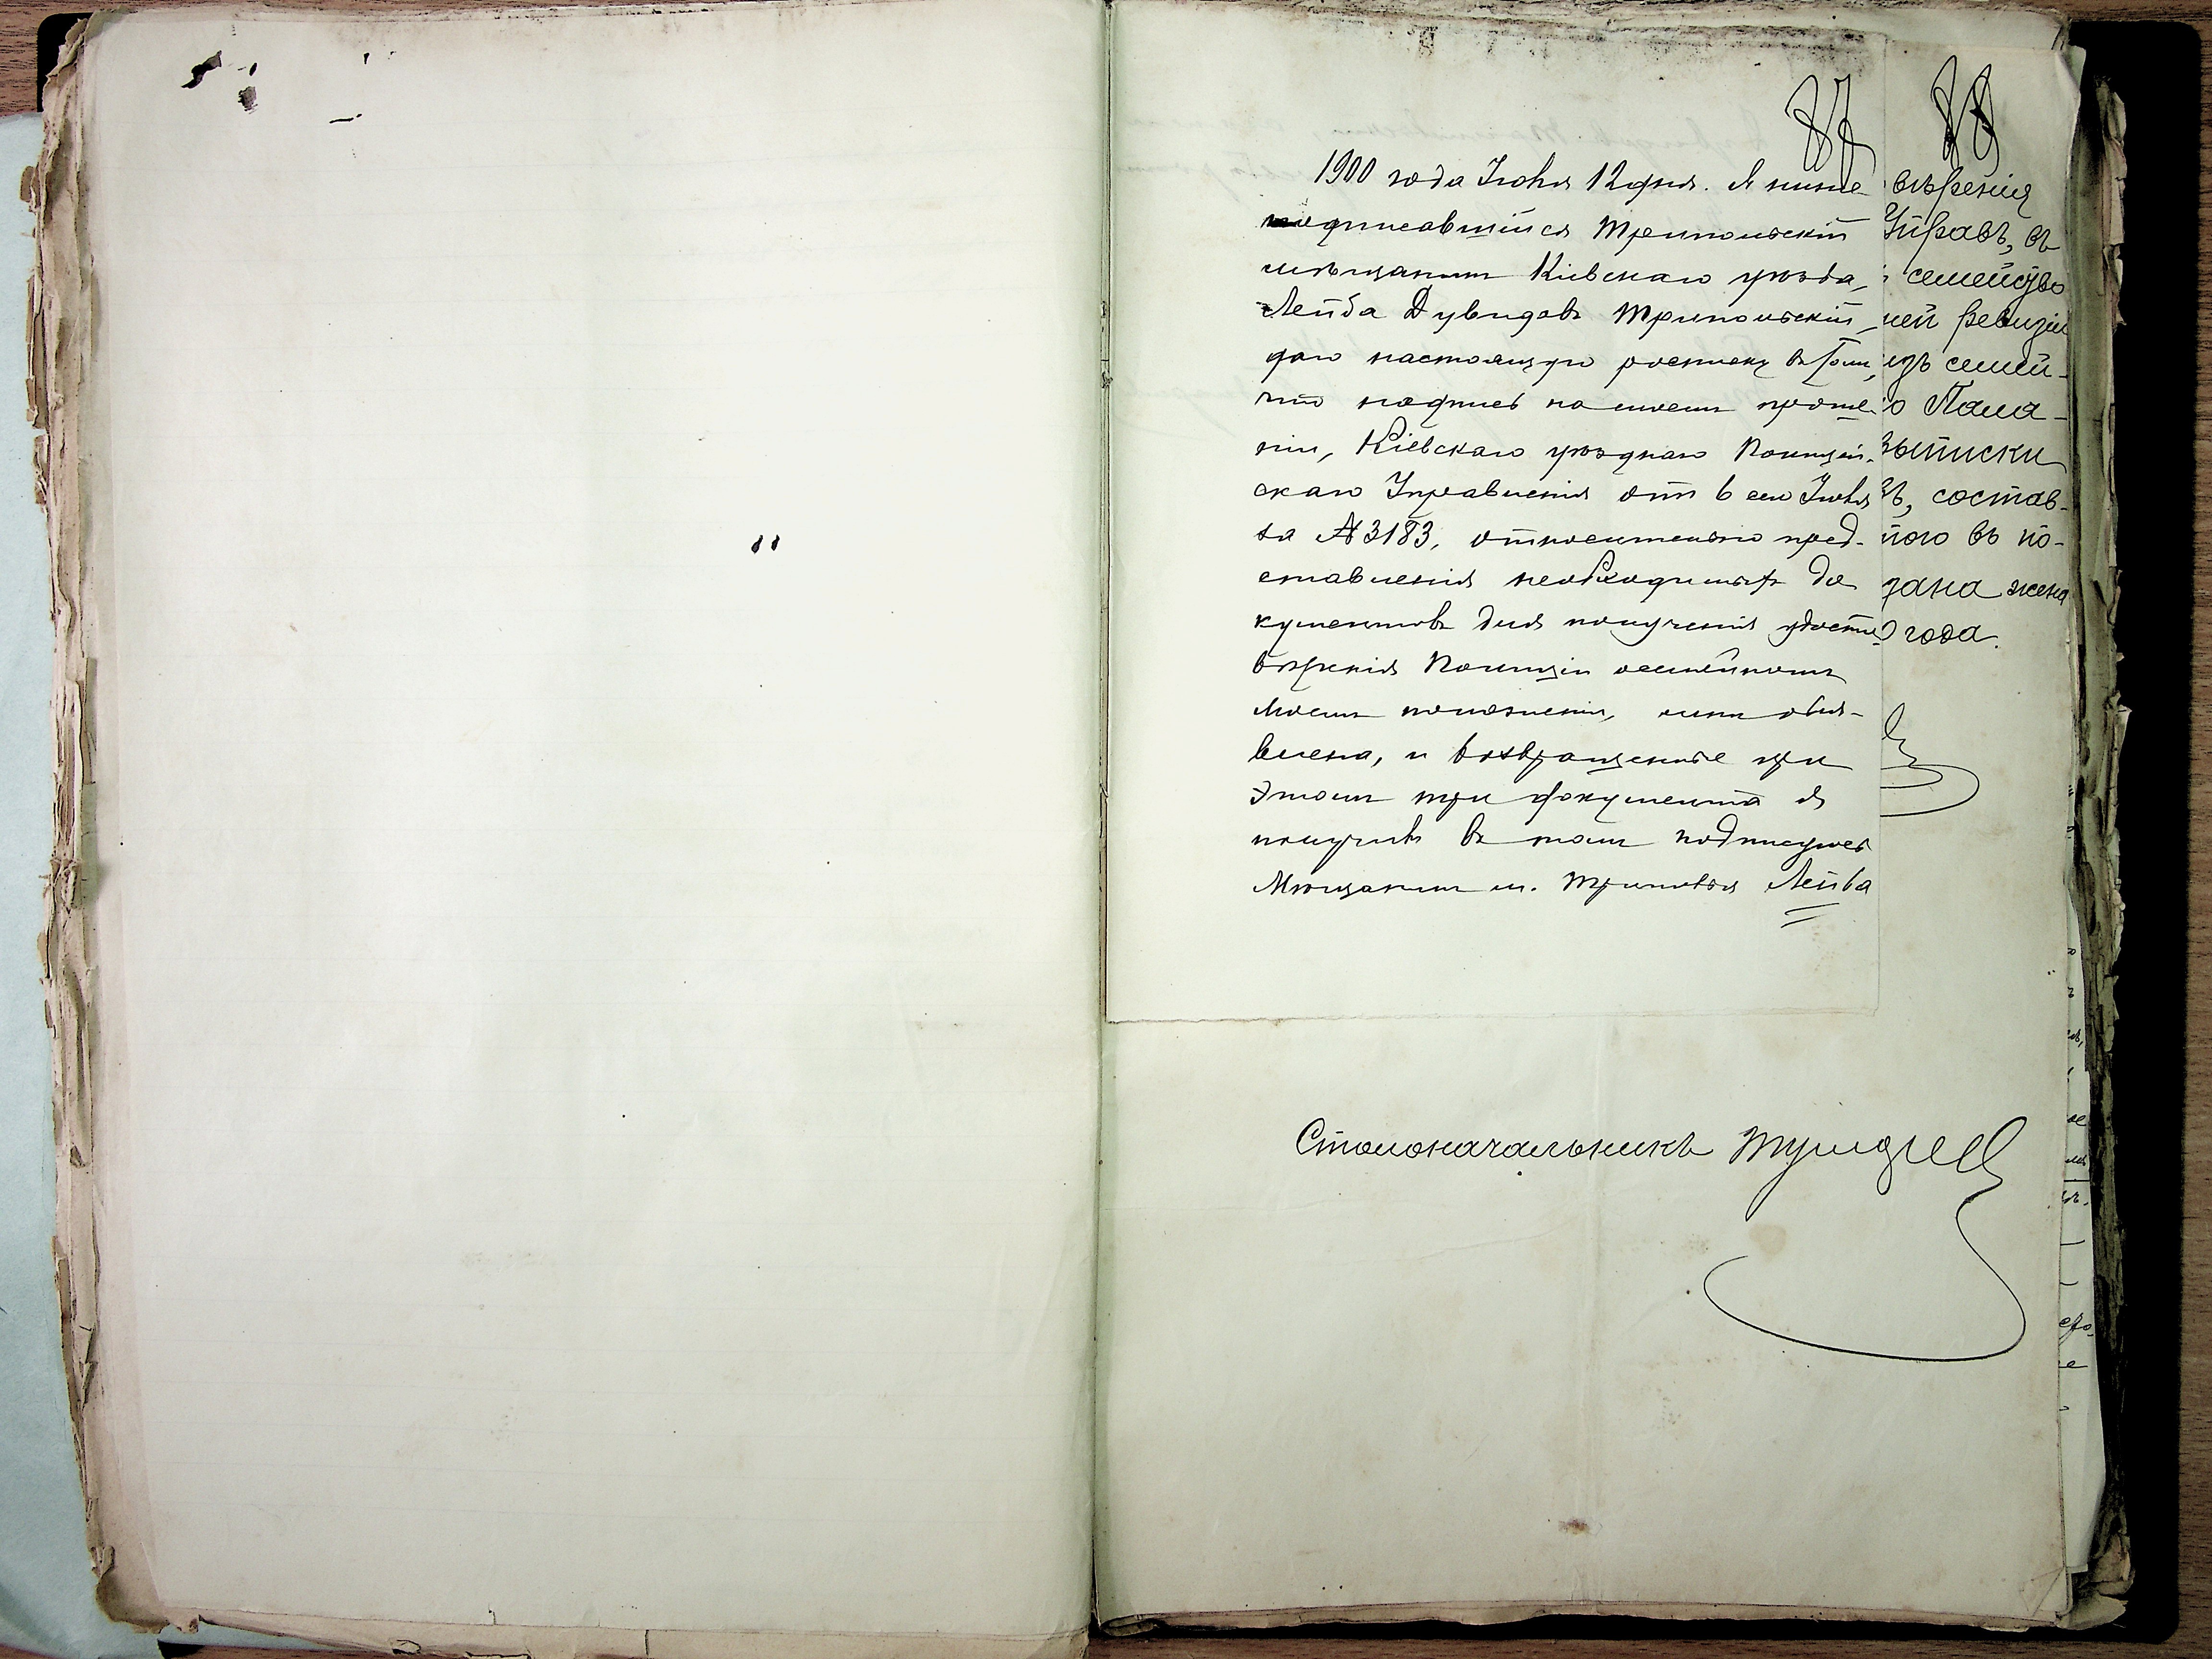 87
1900 года Июня 12 дня. Я ниже
подписавшийся Трипольскій
мѣщанинъ Кіевскаго уѣзда,
Лейба Дувидовъ Трипольскій,
даю настоящую росписку въ томъ,
что надпись на моемъ проше-
ніи, Кіевскаго уѣзднаго Полицей-
скаго Управленія отъ 6 сего Июня
за № 3183, относительно пред-
ставленія необходимыхъ до
кументовъ для полученія удосто-
вѣренія Полиціи о семейномъ
моемъ положеніи, мнѣ объя-
влена, и возвращенные при
этомъ три документа я
получилъ въ томъ подписуюсь
Мѣщанинъ м. Триполья Лейба
88
вѣренія
Управѣ, въ
семейство
ней ревизіи
семей-
о Пала-
выписки
ѣ, состав-
ного въ по-
дана жена
года.
Столоначальникъ